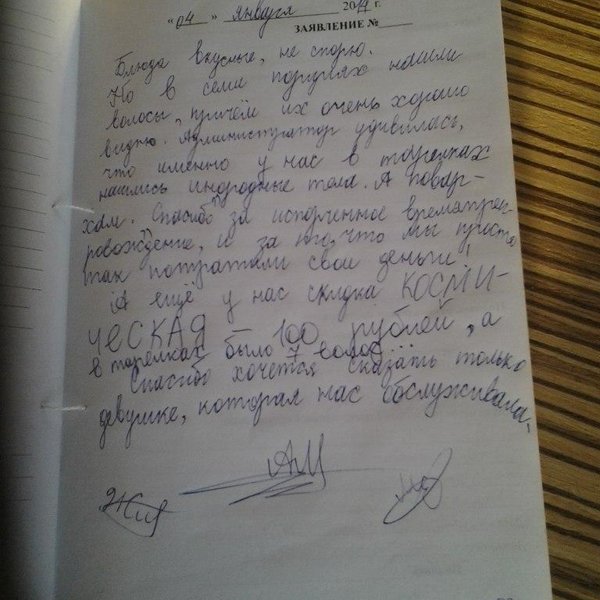 "04" января 2014 г.
ЗАЯВЛЕНИЕ №
Блюда вкусные, не спорю.
Но в семи порциях нашли
волосы, причём их очень хорошо
видно. Администратор удивилась,
что именно у нас в тарелках
нашлись инородные тела. А повар-
хам. Спасибо за испорченное времяпреп-
ровождение, и за то, что мы просто
так потратили свои деньги!
А ещё у нас скидка КОСМИ-
ЧЕСКАЯ 100 рублей, а
в тарелках было 7 волос...
Спасибо хочется сказать только
девушке, которая нас обслуживала.